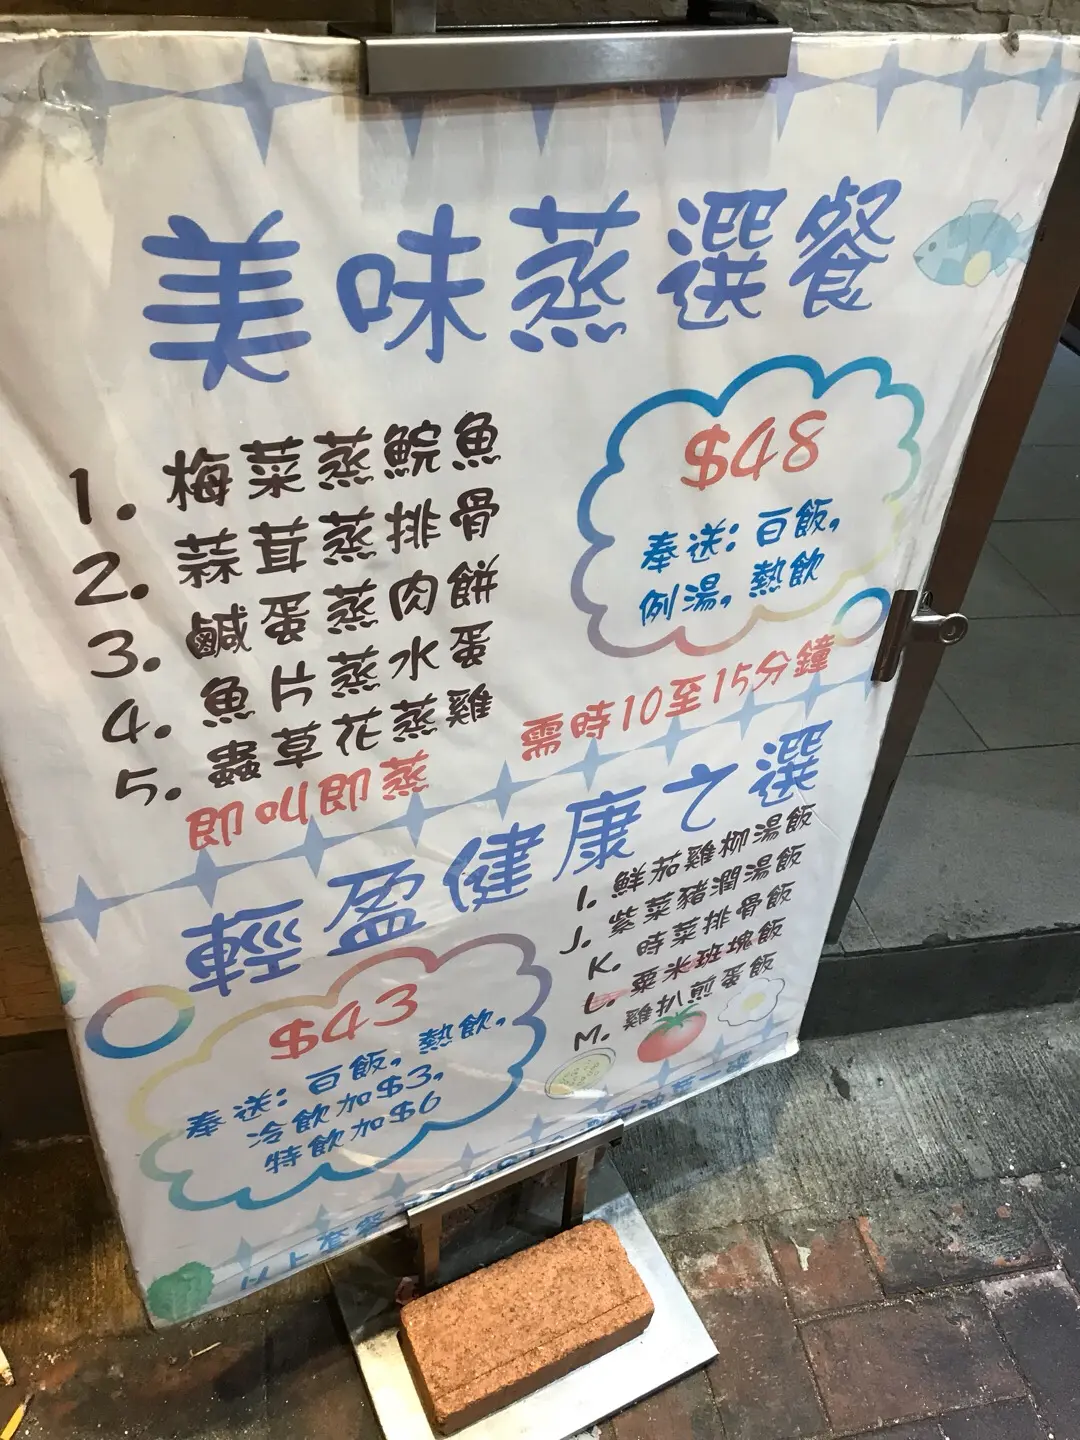 美味蒸選餐
1. 梅菜蒸鯇魚
2. 蒜茸蒸排骨
3. 鹹蛋蒸肉餅
4. 魚片蒸水蛋
5. 蟲草花蒸雞
$48
奉送：白飯，
例湯，熱飲
即叫即蒸
需時10至15分鐘
輕盈健康之選
I. 鮮茄雞柳湯飯
J. 紫菜豬潤湯飯
K. 時菜排骨飯
L. 粟米班塊飯
M. 雞扒煎蛋飯
$43
奉送：白飯，熱飲，
冷飲加$3，
特飲加$6
以上套餐